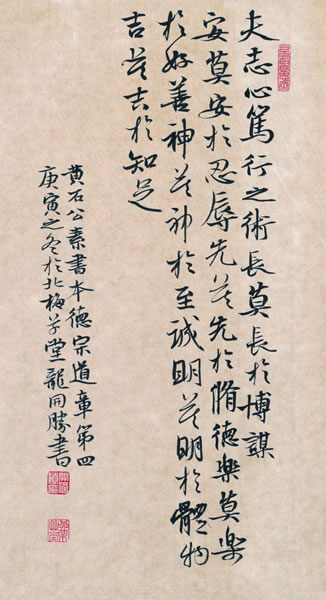 夫志心篤行之術長莫長於博謀
安莫安於忍辱先莫先於脩德樂莫樂
於好善神莫神於至誠明莫明於體物
吉莫吉於知足
黃石公素書本德宗道章第四
庚寅之冬於北梅草堂龍同勝書